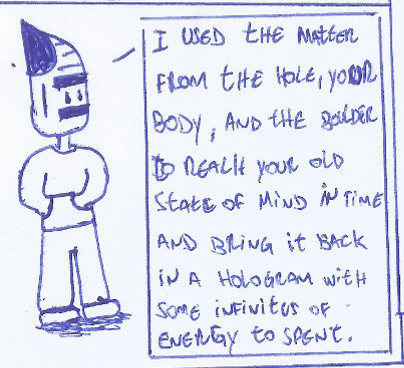 I USED THE MATTER
FROM THE HOLE, YOUR
BODY, AND THE BOULDER
TO REACH YOUR OLD
STATE OF MIND IN TIME
AND BRING IT BACK
IN A HOLOGRAM WITH
SOME INFINITUS OF
ENERGY TO SPENT.